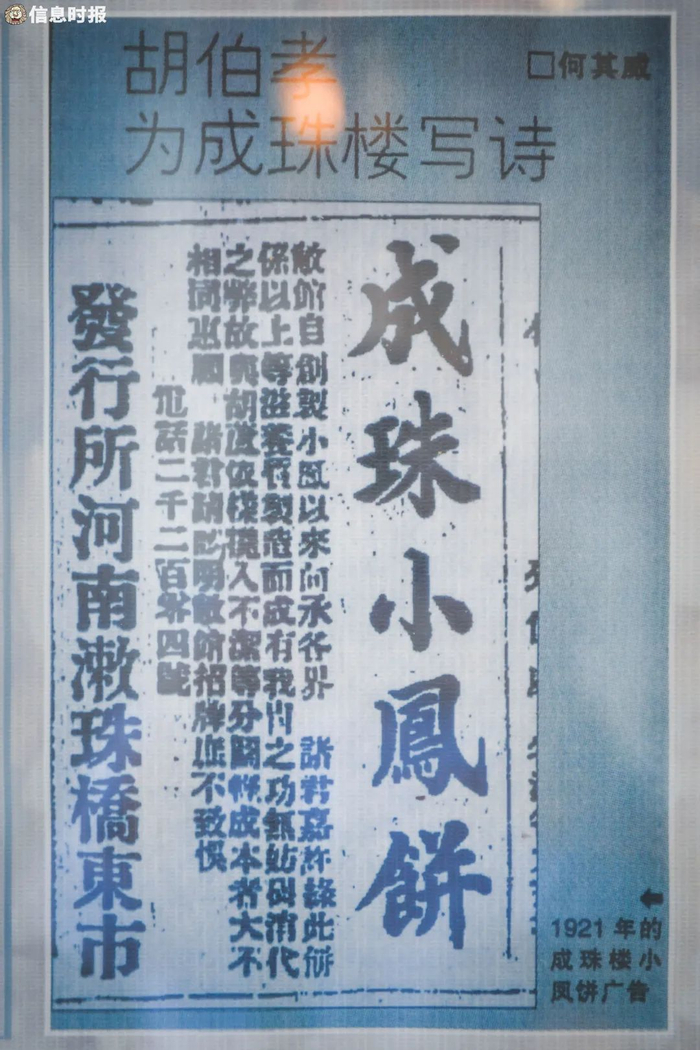 信息时报
胡伯孝
为成珠楼写诗
□何其威
成珠小鳳餅
敝館自創製小鳳以來向承各界 諸君嘉許緣此餅
保以上等滋養 而成有我胃之功無 消代
之弊故與胡 入不潔等分 成本者大不
相同惠顧 諸君請 明敝館招牌庶不致悞
電話二千二百零四號
發行所河南漱珠橋東市
1921年的
成珠楼小
凤饼广告